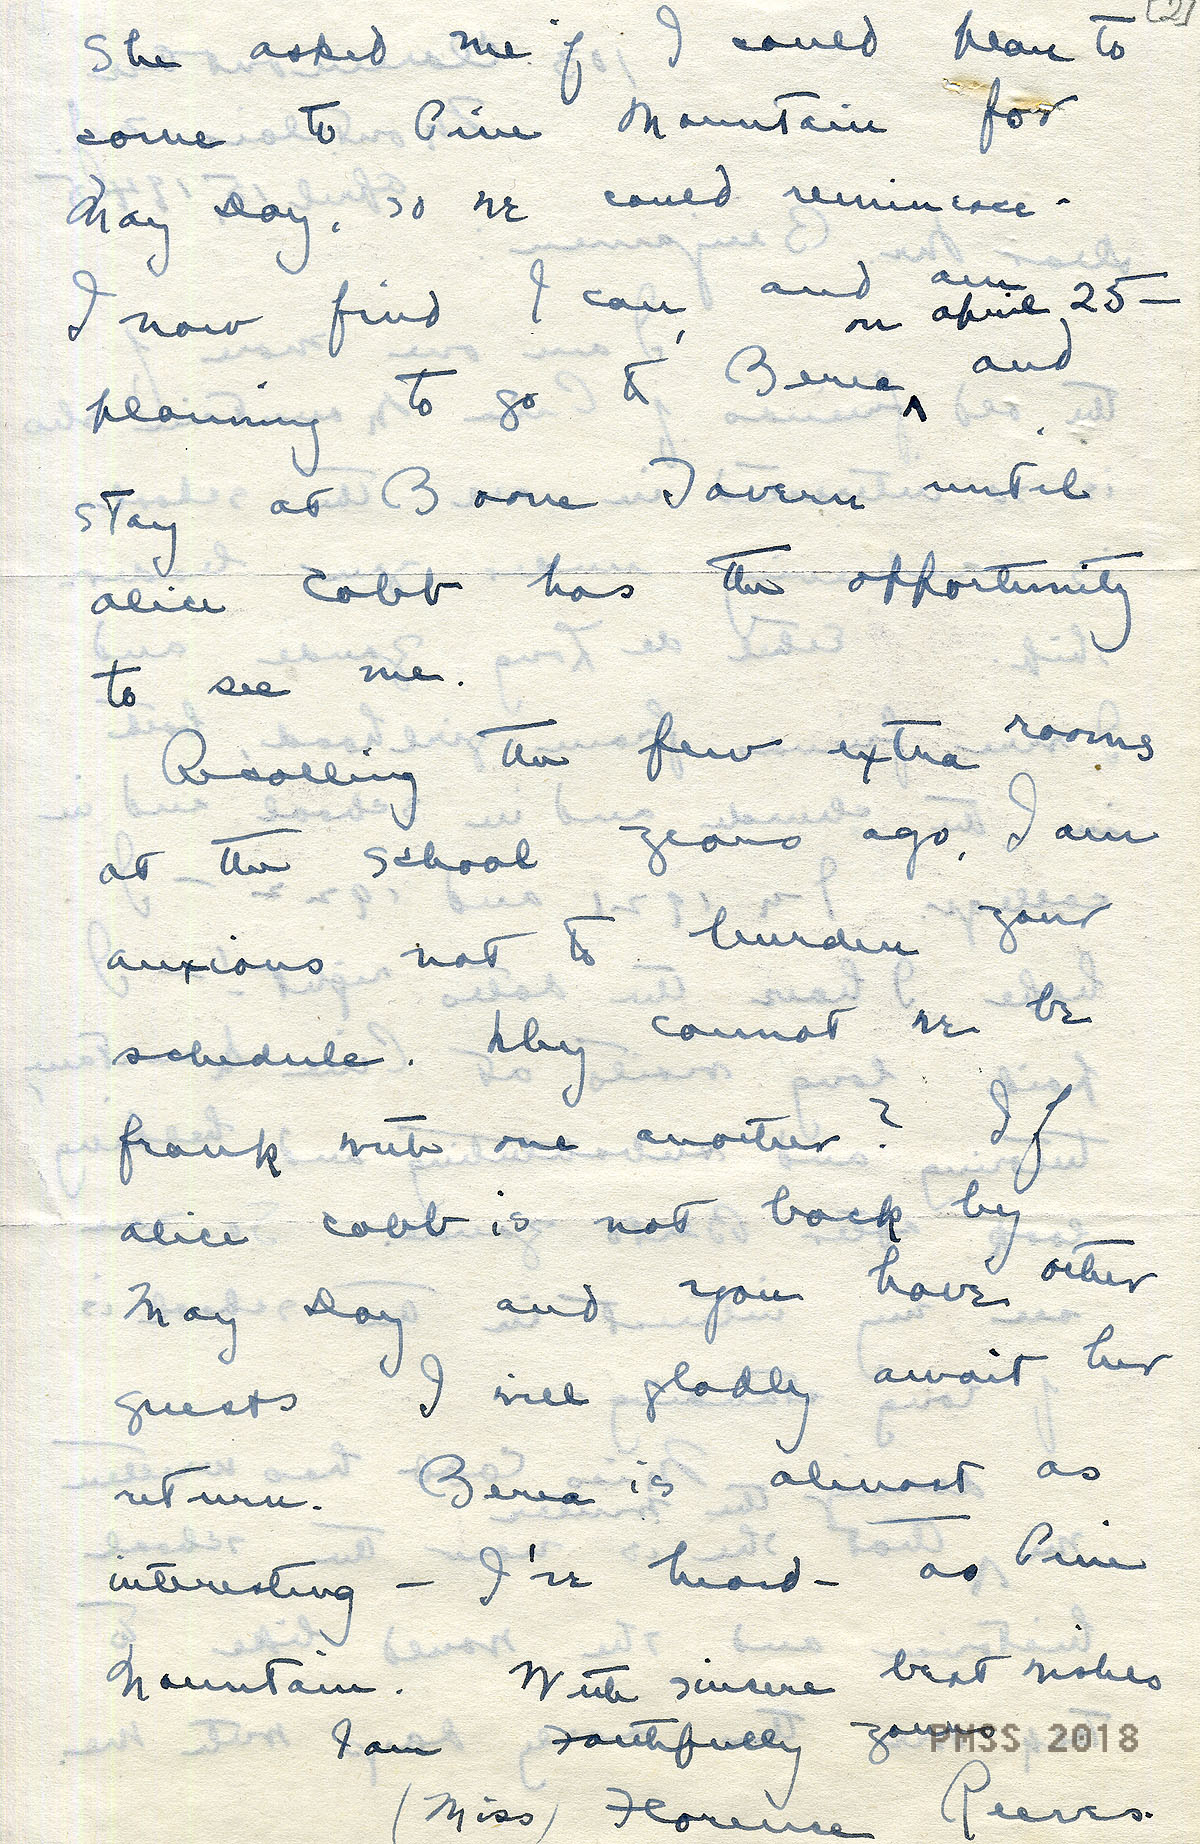 [2]
She asked me if I could plan to
come to Pine Mountain for
May Day, so we could reminisce.
I now find I can, and am
planning to go to Berea ^ on April 25 – and
stay at Boone Tavern until
Alice Cobb has the opportunity
to see me.
Recalling the few extra rooms
at the school years ago, I am
anxious not to burden your
schedule. Why cannot we be
frank with one another? If
Alice Cobb is not back by
May Day and you have other
guests I will gladly await her
return. Berea is almost as
interesting – I've heard – as Pine
Mountain. With sincere best wishes
I am Faithfully yours
(Miss) Florence Reeves.
PMSS 2018